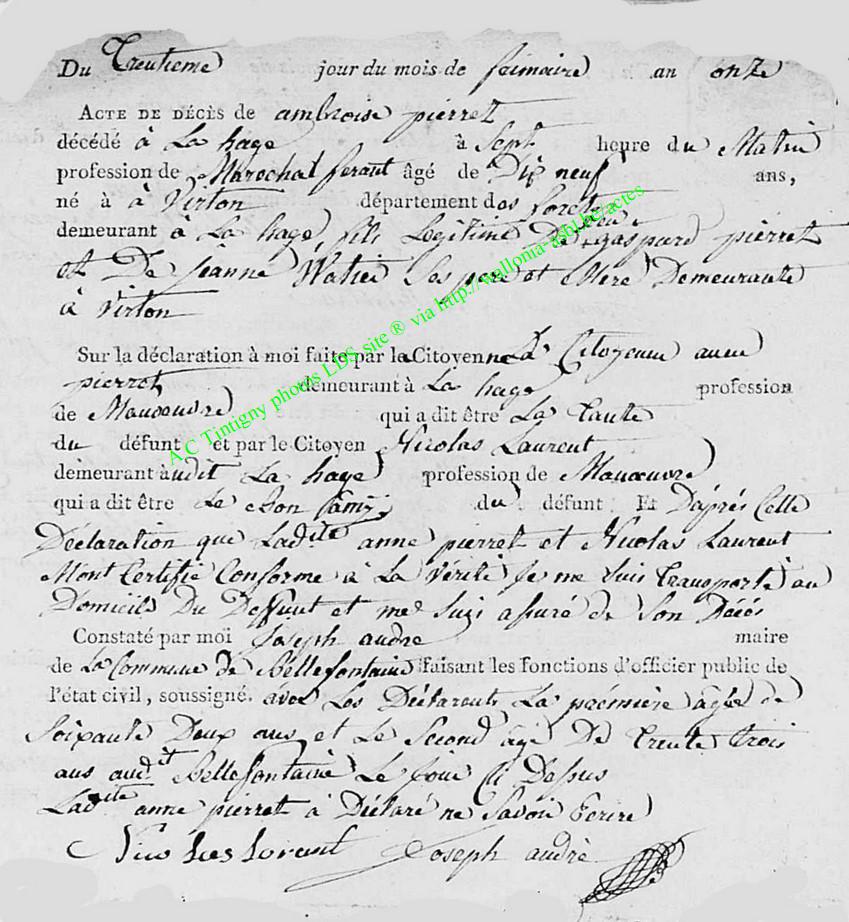 Du Trentieme jour du mois de frimaire an onze
ACTE DE DÉCÈS de ambroise pierret
décédé à La hage à Sept heure du Matin
profession de Marechal ferant âgé de Dix neuf ans,
né à à Virton département des forets
demeurant à La hage, fils Legitime De feu gaspard pierret
et De jeanne Watier Ses pere et Mere Demeurante
à Virton
Sur la déclaration à moi faite par la Citoyenne La Citoyenne anne
pierret demeurant à La hage profession
de Manoeuvre qui a dit être La Tante
du défunt et par le Citoyen Nicolas Laurent
demeurant audit La hage profession de Manoeuvre
qui a dit être Le Bon famy du défunt Et D'aprés Cette
Déclaration que Ladite anne pierret et Nicolas Laurent
Mont Certifié Conforme à La Vérité Je me Suis Transporté au
Domicils Du Deffunt et me Suis assuré de Son Décés
Constaté par moi Joseph andre maire
de La Commune de Bellefontaine faisant les fonctions d'officier public de
l'état civil, soussigné. avec Les Déclarents La prémiere âgée de
Soixante Deux ans et Le Second âgé De Trente Trois
ans audit Bellefontaine Le Jour Ci Dessus
Ladite anne pierret à Déclaré ne Savoir Ecrire
Nicolas Lorent Joseph andrè
A.C Tintigny photos LDS site ® via http://wallonia-asbl.be/actes